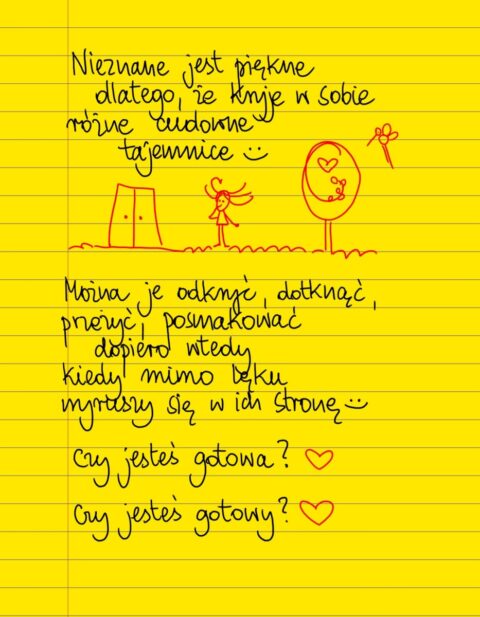 Nieznane jest piękne
dlatego, że kryje w sobie
różne cudowne
tajemnice :)
Można je odkryć, dotknąć,
przeżyć, posmakować
dopiero wtedy
kiedy mimo lęku
wyruszy się w ich stronę :)
Czy jesteś gotowa? ♡
Czy jesteś gotowy? ♡